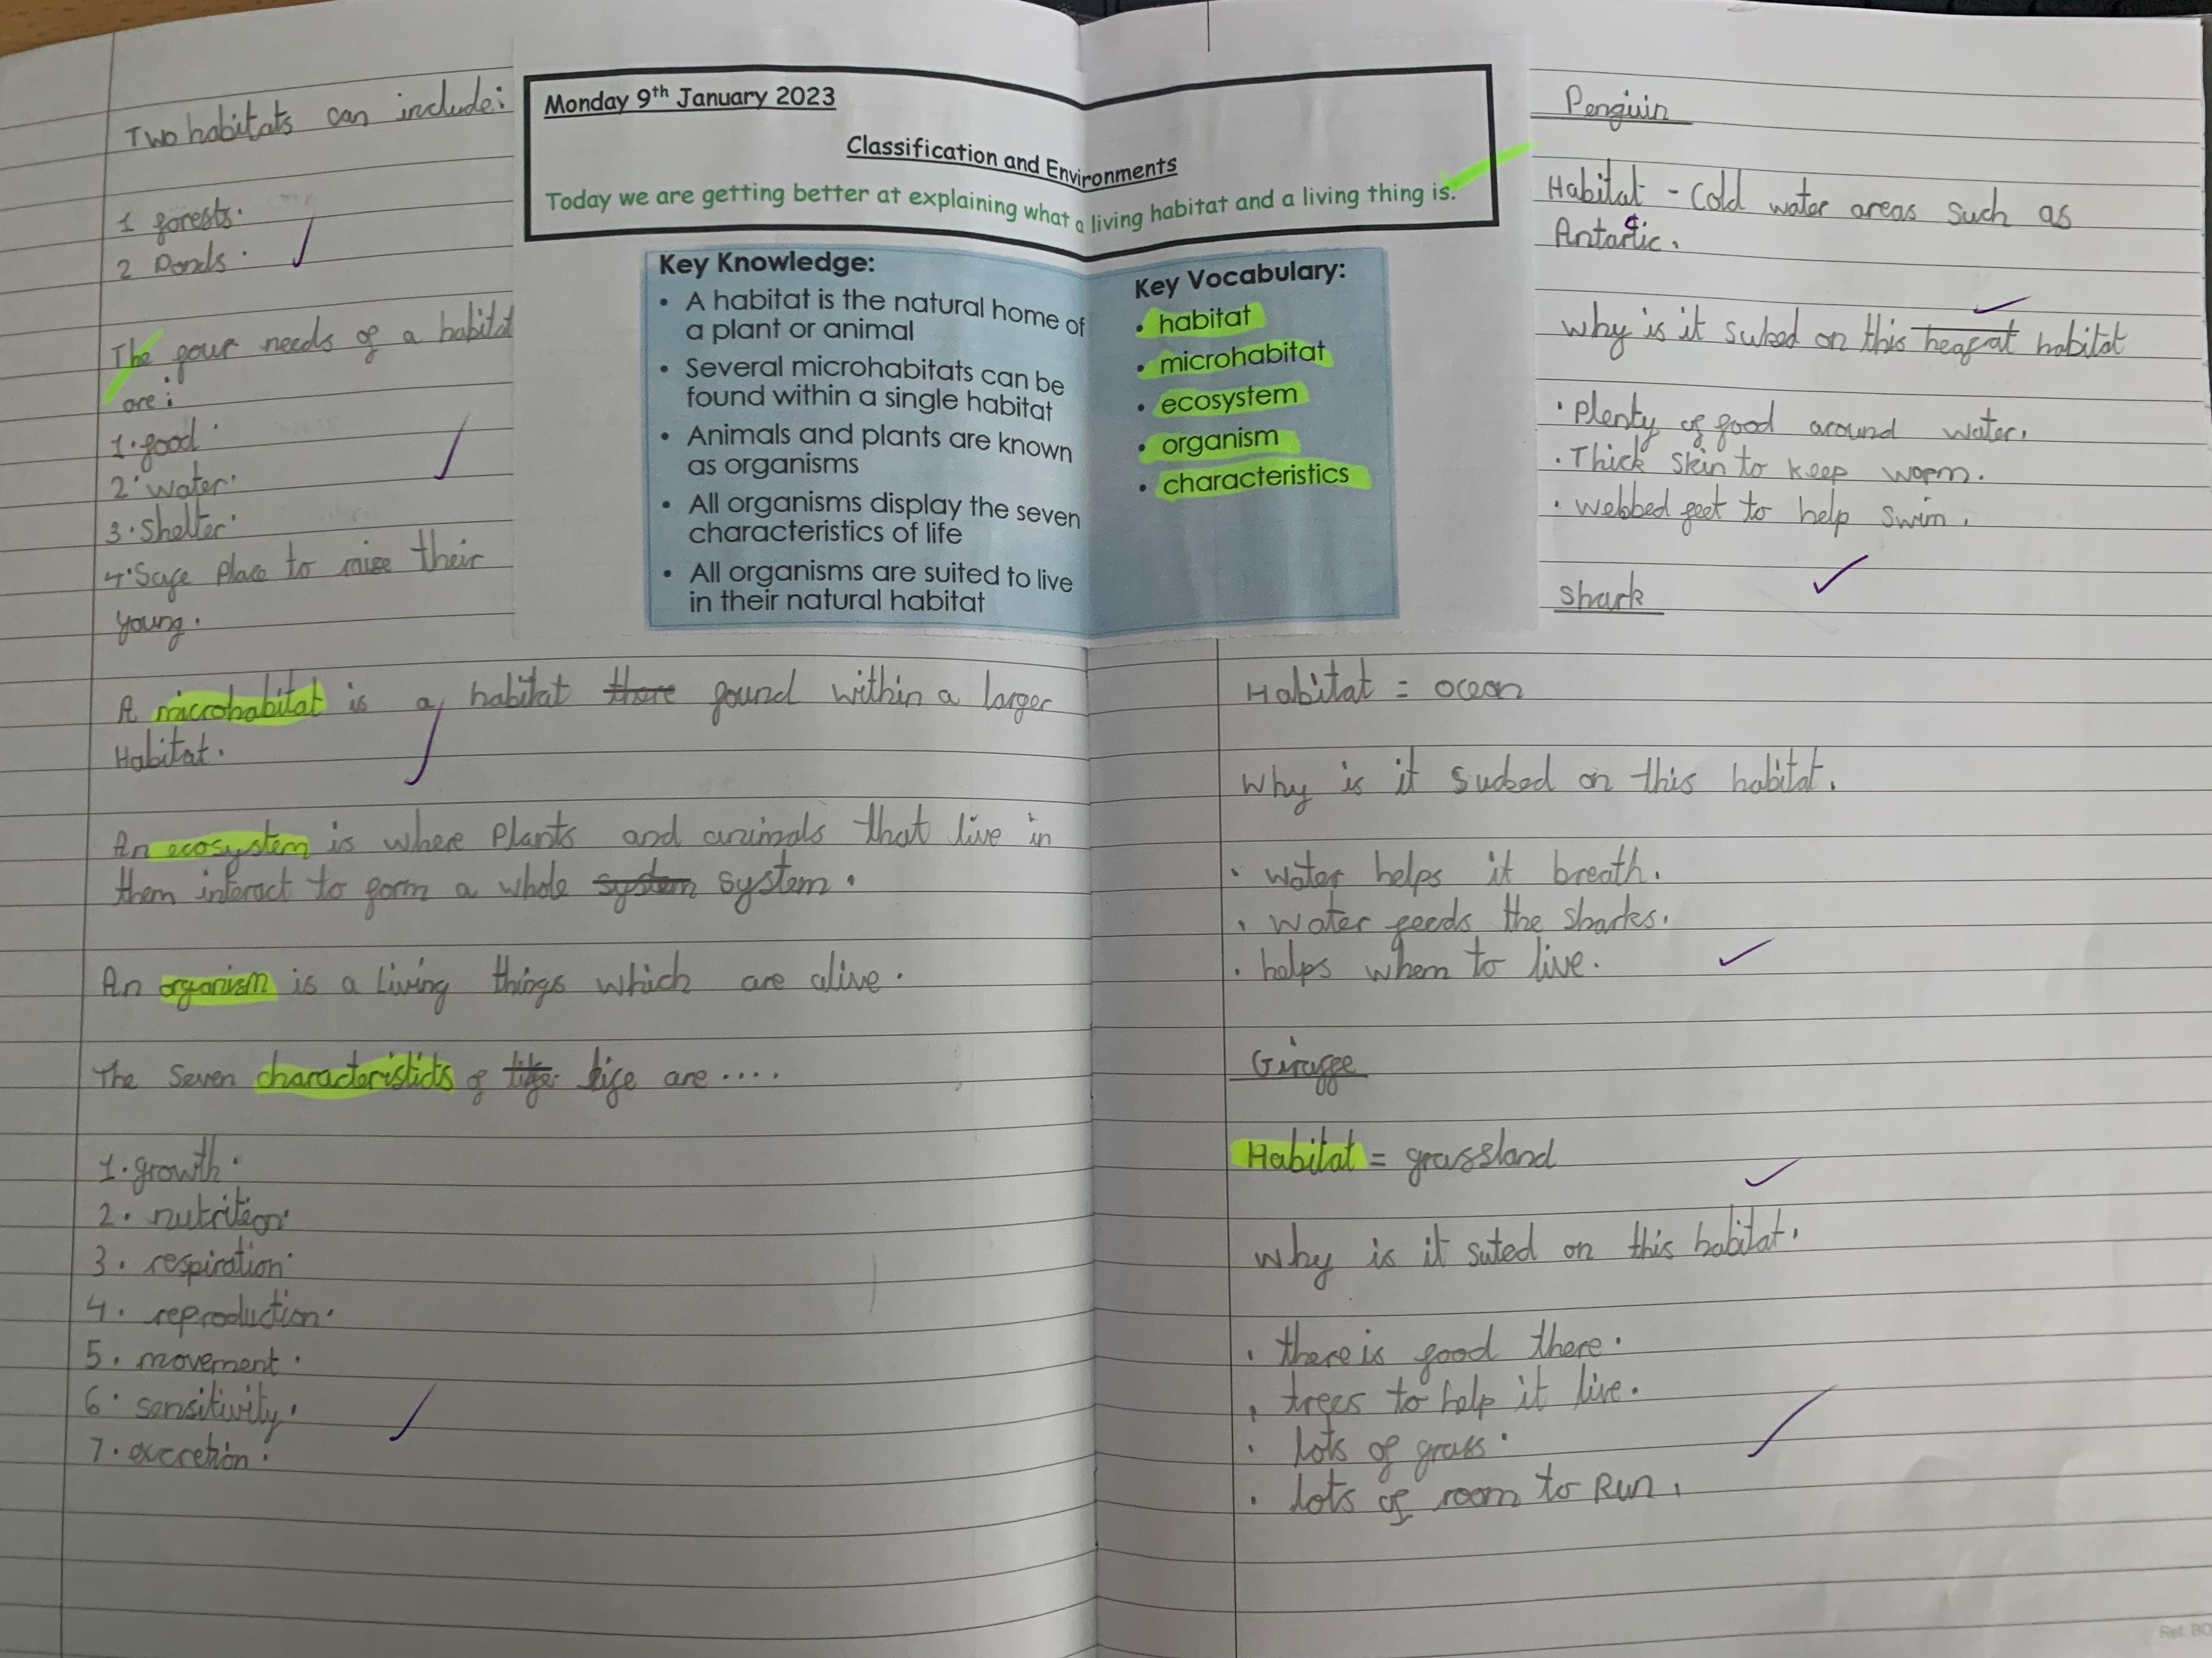 Two habitats can include:
1 forests.
2 Ponds.
The four needs of a habitat
are:
1. food.
2. water.
3. Shelter.
4. Safe Place to raise their
young.
Monday 9th January 2023
Classification and Environments
Today we are getting better at explaining what a living habitat and a living thing is.
Key Knowledge:
• A habitat is the natural home of
a plant or animal
• Several microhabitats can be
found within a single habitat
• Animals and plants are known
as organisms
• All organisms display the seven
characteristics of life
• All organisms are suited to live
in their natural habitat
Key Vocabulary:
• habitat
• microhabitat
• ecosystem
• organism
• characteristics
A microhabitat is a habitat there found within a larger
Habitat.
An ecosystem is where Plants and animals that live in
them interact to form a whole system system.
An organism is a Living things which are alive.
The Seven characteristicts of life life are ....
1. growth.
2. nutrition.
3. respiration.
4. reproduction.
5. movement.
6. sensitivity.
7. excretion.
Penguin
Habitat - Cold water areas such as
Antartic.
c
why is it suted on this habitat
• Plenty of food around water.
• Thick skin to keep warm.
• webbed feet to help swim.
Shark
Habitat = ocean
Why is it suted on this habitat.
• water helps it breath.
• water feeds the sharks.
• helps when to live.
Giraffe
Habitat = grassland
why is it suted on this habitat.
• there is food there.
• trees to help it live.
• lots of grass.
• lots of room to Run.